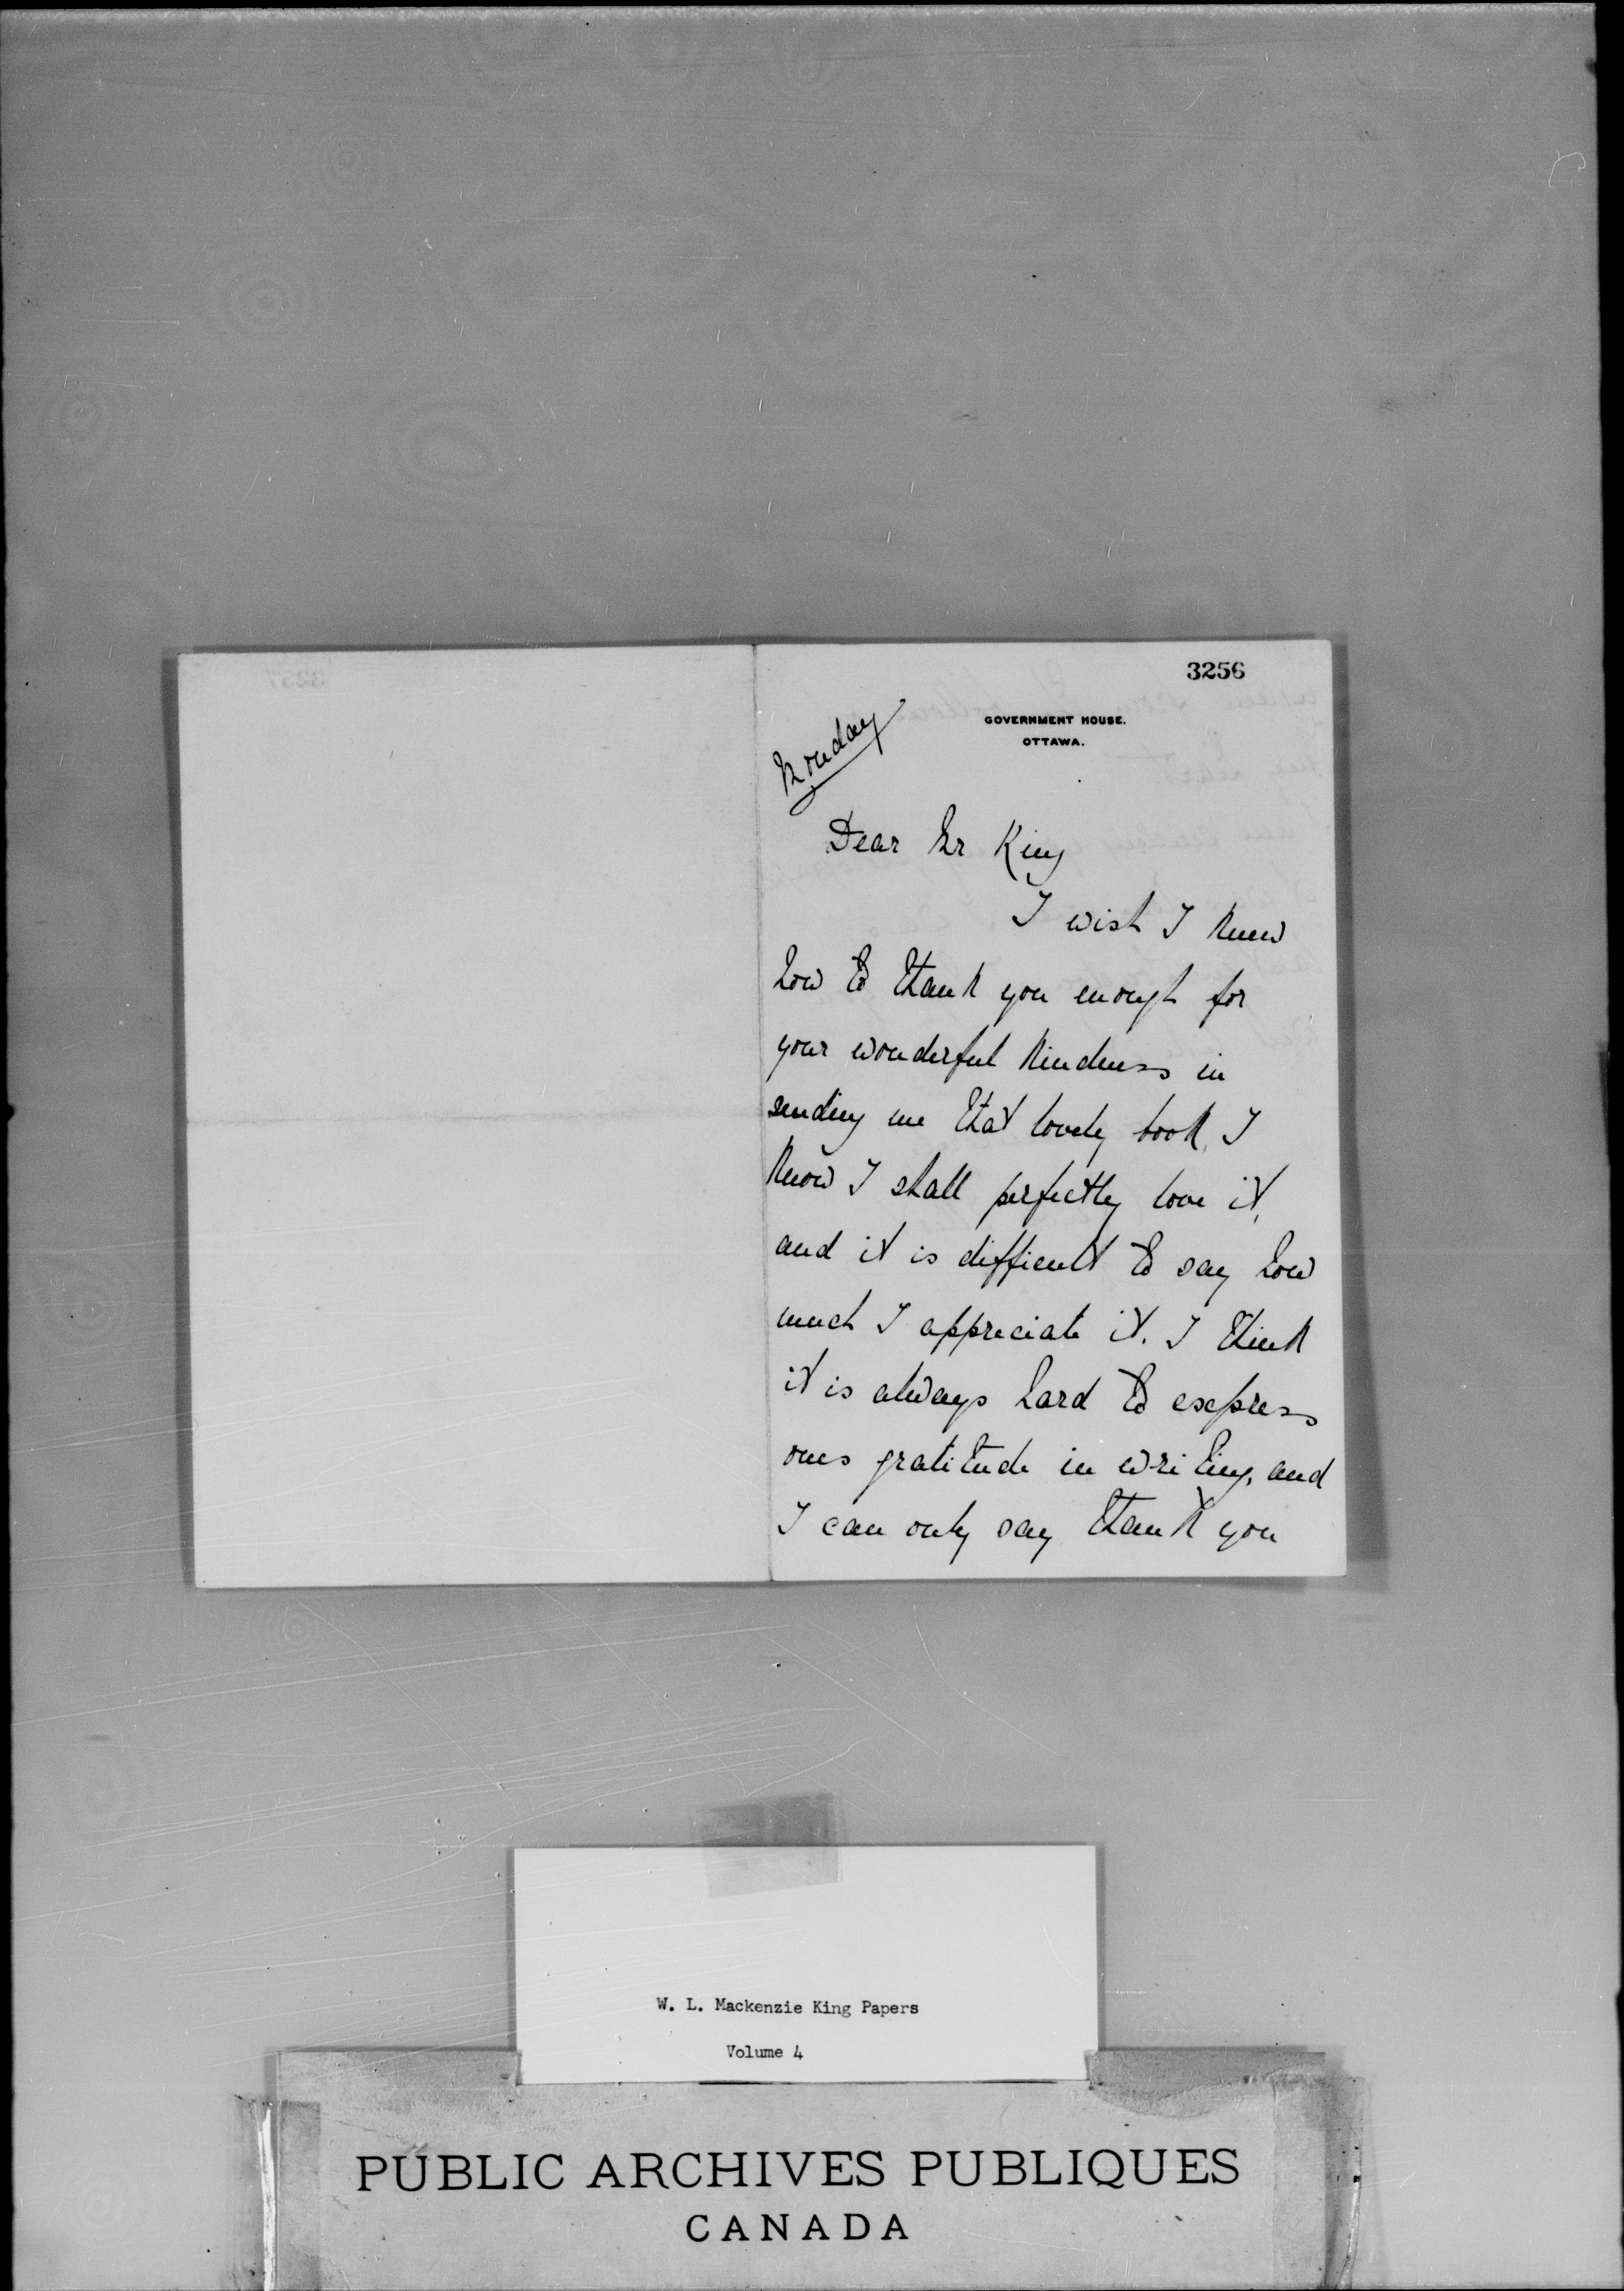 3256
GOVERNMENT HOUSE.
OTTAWA.
Monday
Dear Mr King
I wish I knew
how to thank you enough for
your wonderful kindness in
sending me that lovely book, I
know I shall perfectly love it,
and it is difficult to say how
much I appreciate it. I think
it is always hard to express
ones gratitude in writing, and
I can only say thank you
W. L. Mackenzie King Papers
Volume 4
PUBLIC ARCHIVES PUBLIQUES
CANADA